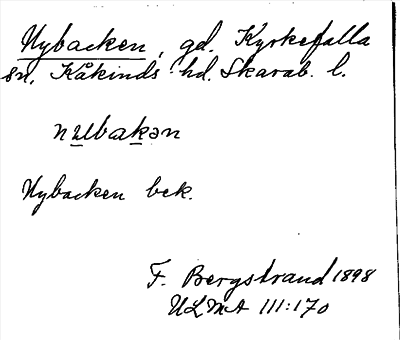 Nybacken, gd. Kyrkefalla
sn, Kåkinds hd. Skarab. l.
nybakən
Nybacken bek.
F. Bergstrand 1898
ULMA 111:170